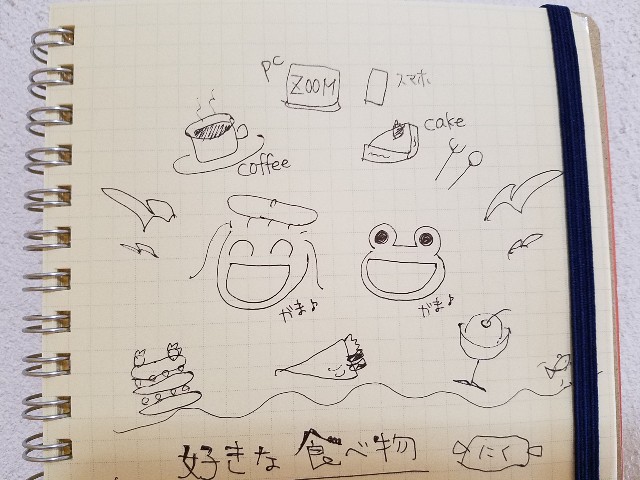 PC
ZOOM
スマホ
coffee
cake
がま♪
がま♪
好きな食べ物
にく